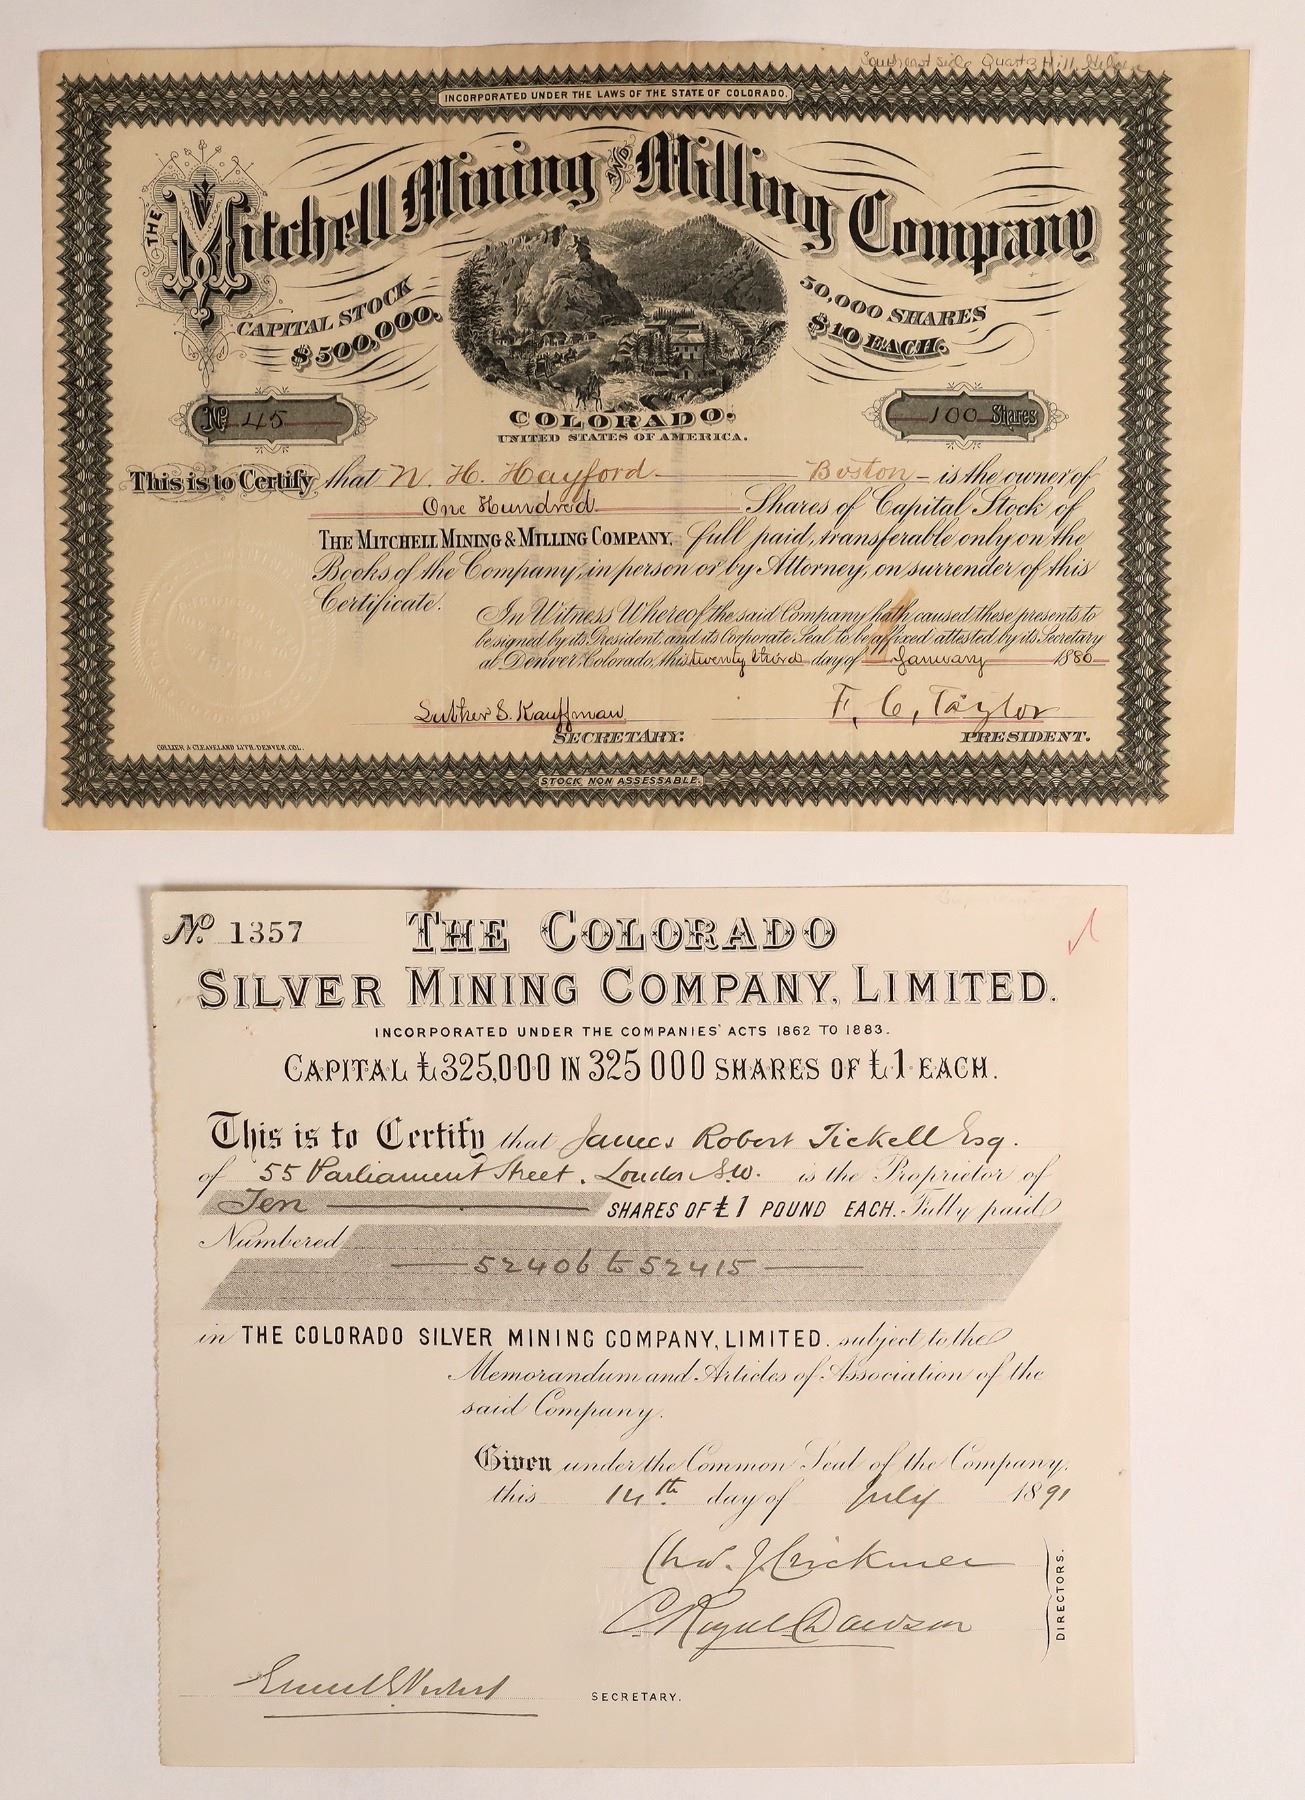 Southeast side Quartz Hill
INCORPORATED UNDER THE LAWS OF THE STATE OF COLORADO.
THE Mitchell Mining AND Milling Company
CAPITAL STOCK
$500,000.
50,000 SHARES
$10 EACH.
COLORADO.
UNITED STATES OF AMERICA.
No. 45
100 Shares
This is to Certify that N. H. Hayford Boston is the owner of
One Hundred Shares of Capital Stock of
THE MITCHELL MINING & MILLING COMPANY, full paid, transferable only on the
Books of the Company, in person or by Attorney, on surrender of this
Certificate.
In Witness Whereof the said Company hath caused these presents to
be signed by its President, and its Corporate Seal to be affixed attested by its Secretary
at Denver, Colorado, this twenty third day of January 1880
Luther S. Kauffman
SECRETARY.
F. C. Taylor
PRESIDENT.
COLLIER & CLEAVELAND LITH. DENVER, COL.
STOCK NON ASSESSABLE.
No. 1357
THE COLORADO
SILVER MINING COMPANY, LIMITED.
INCORPORATED UNDER THE COMPANIES' ACTS 1862 TO 1883.
CAPITAL £325,000 IN 325 000 SHARES OF £1 EACH.
This is to Certify that James Robert Tickell Esq.
of 55 Parliament Street, London S.W. is the Proprietor of
Ten SHARES OF £1 POUND EACH. Fully paid
Numbered
52406 to 52415
in THE COLORADO SILVER MINING COMPANY, LIMITED. subject to the
Memorandum and Articles of Association of the
said Company.
Given under the Common Seal of the Company,
this 14th day of July 1891
Chas. J. Crickmer
C Royal Dawson
DIRECTORS.
SECRETARY.